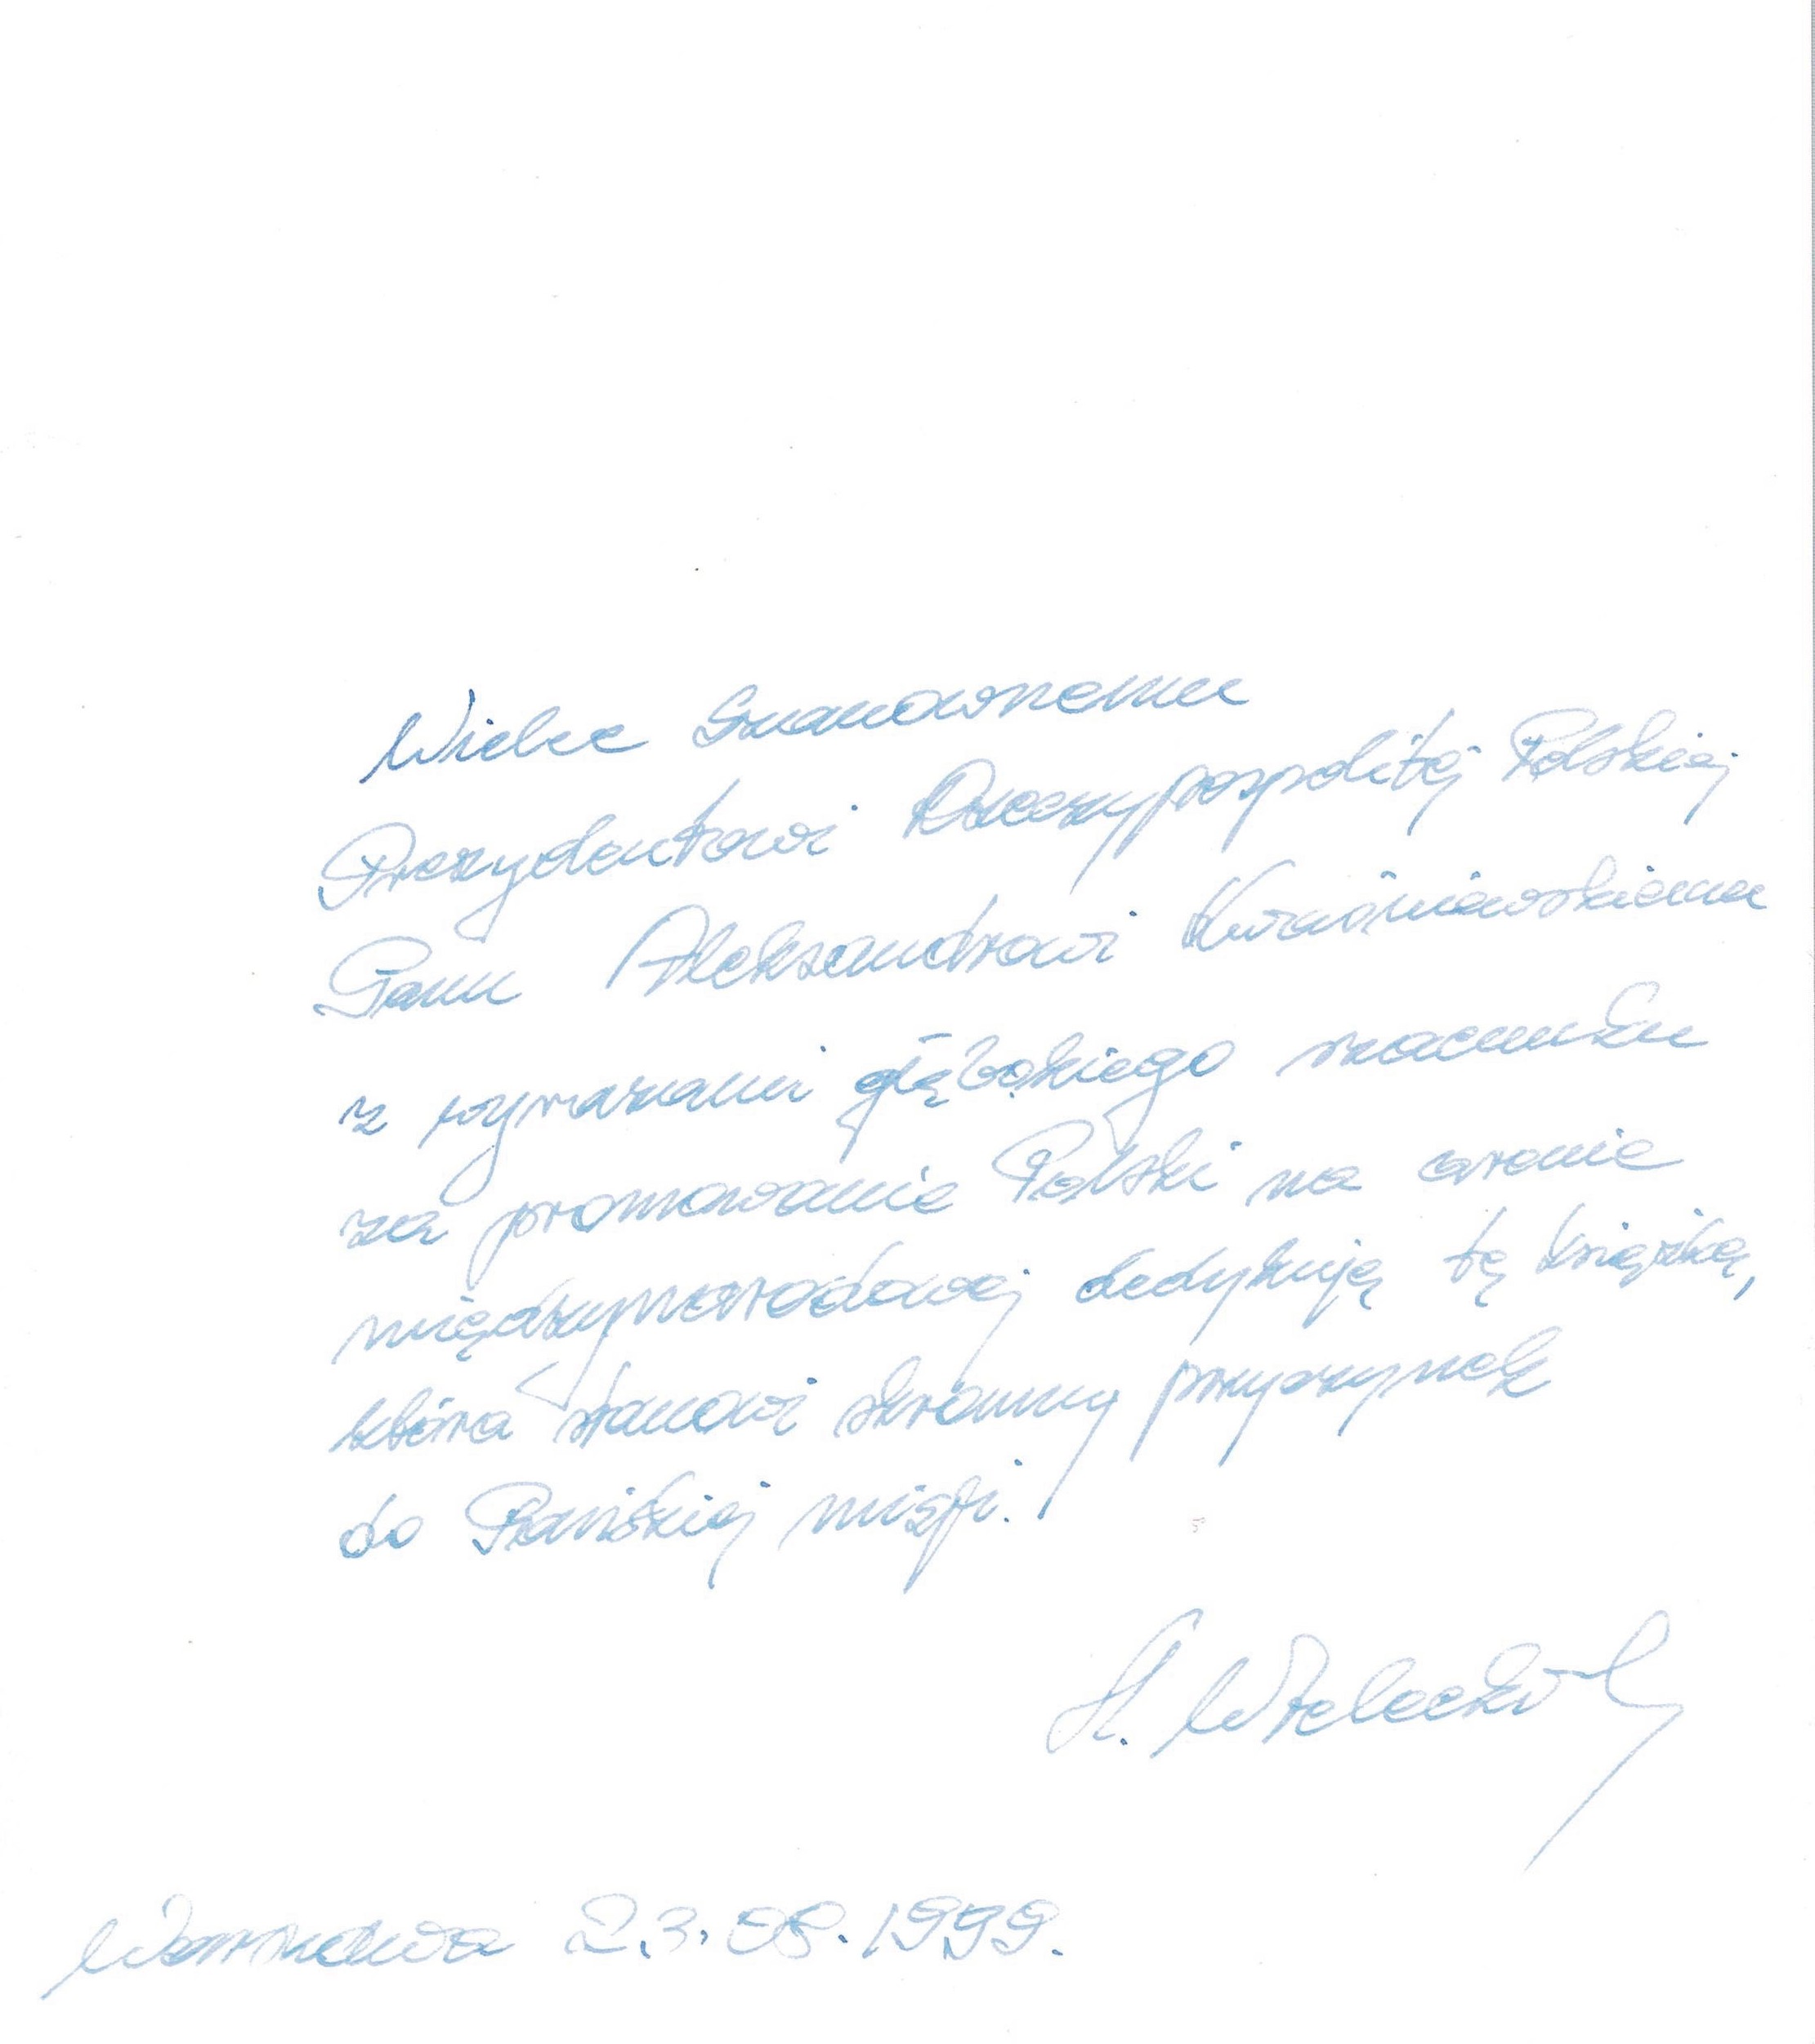 Wielce Szanownemu
Prezydentowi Rzeczypospolitej Polskiej
Panu Aleksandrowi Kwaśniewskiemu
z wyrazami głębokiego szacunku
za promowanie Polski na arenie
międzynarodowej dedykuję tę książkę,
która stanowi skromny przyczynek
do Pańskiej misji.
H. Wielecki
Warszawa 23.08.1999.